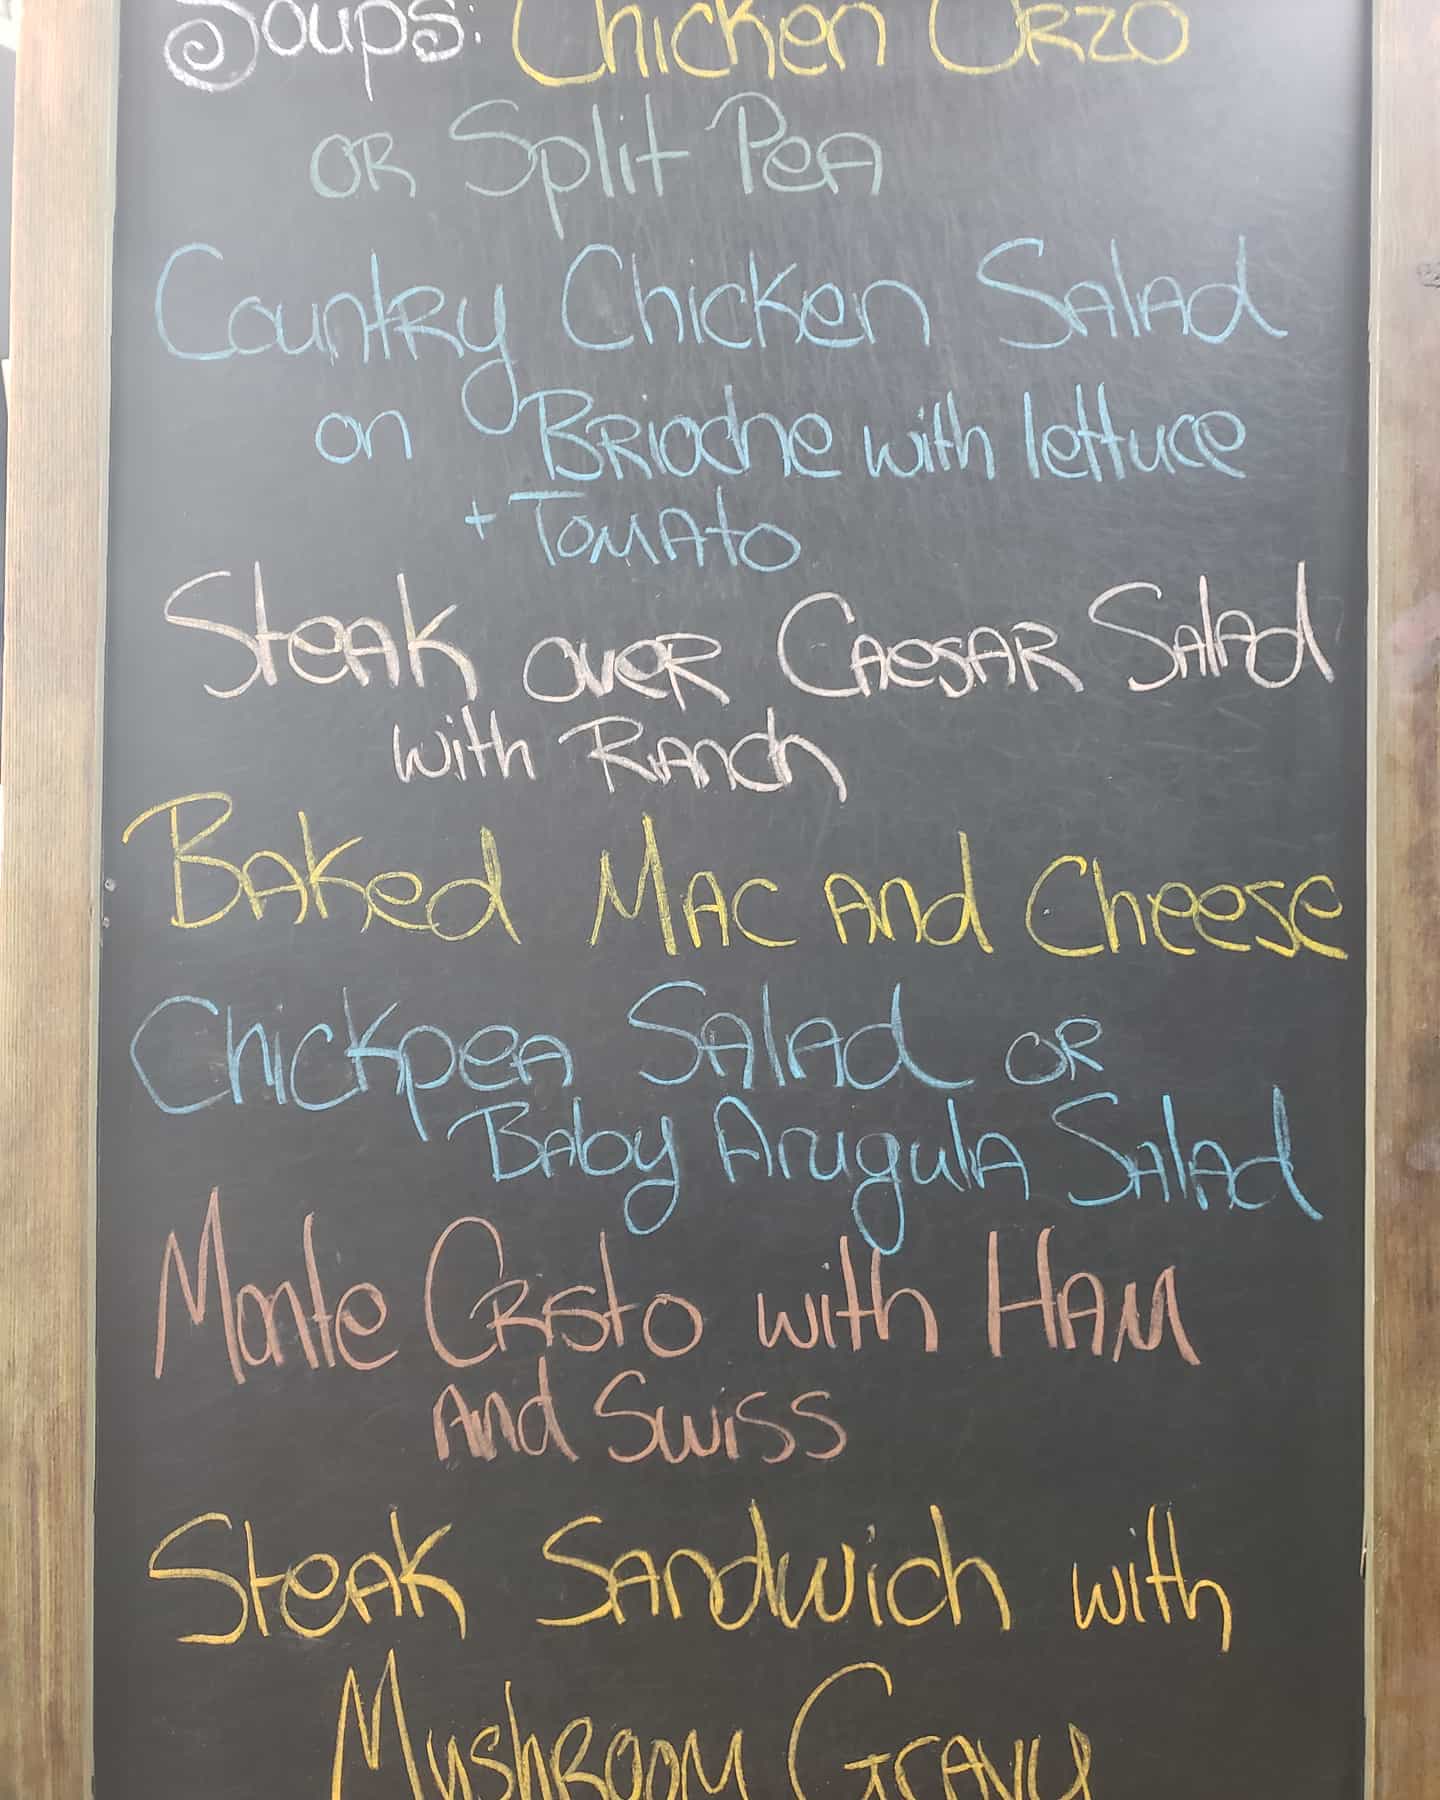 Soups: Chicken Orzo
or Split Pea
Country Chicken Salad
on Brioche with lettuce
+ Tomato
Steak over Caesar Salad
with Ranch
Baked Mac and Cheese
Chickpea Salad or
Baby Arugula Salad
Monte Cristo with Ham
and Swiss
Steak Sandwich with
Mushroom Gravy